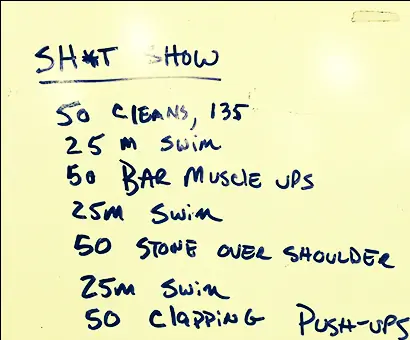 SH*T SHOW
50 CLEANS, 135
25 m SWIM
50 BAR MUSCLE UPS
25m SWIM
50 STONE OVER SHOULDER
25m SWIM
50 CLAPPING PUSH-UPS